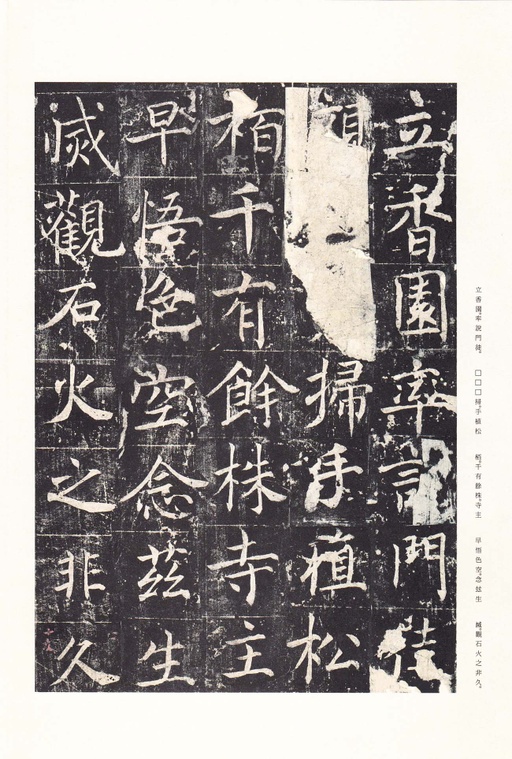 立香園率說門徒
掃手植松
栢千有餘株寺主
早悟色空念玆生
滅觀石火之非久
立香園率說門徒。 □□□掃。手植松 栢千有餘株。寺主 早悟色空。念玆生 滅觀石火之非久。